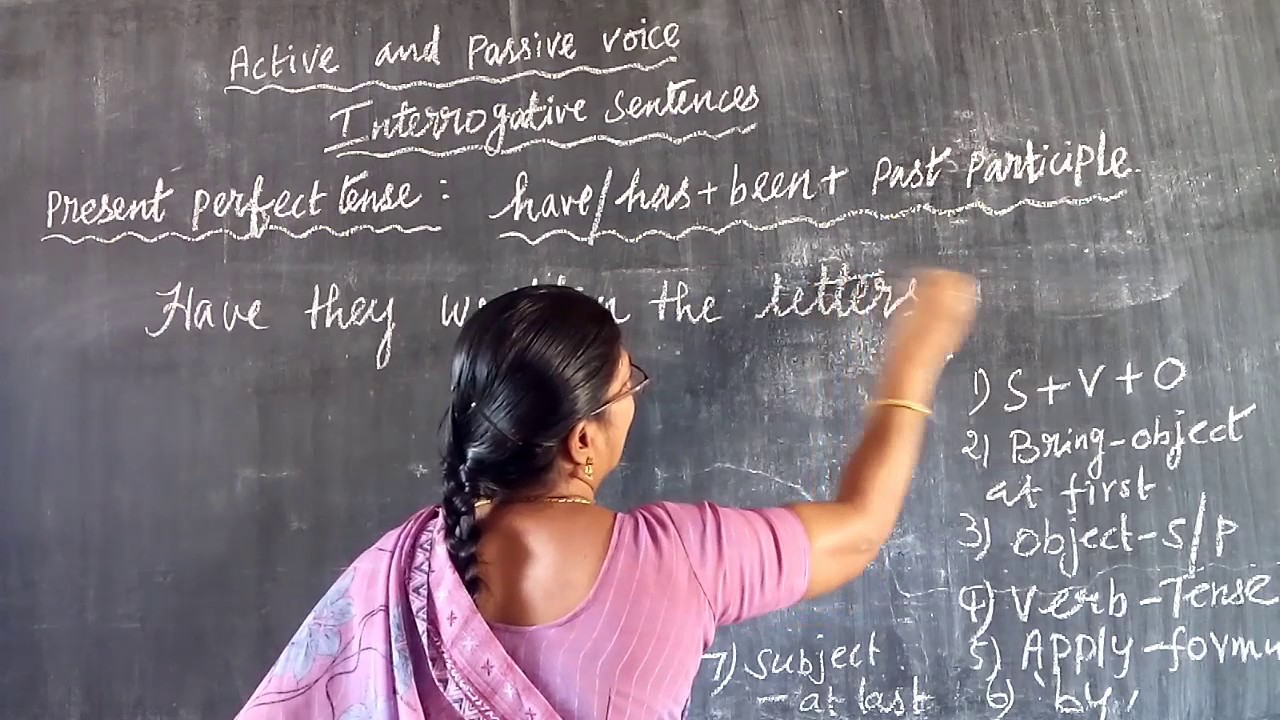 Active and Passive voice
Interrogative Sentences
Present perfect tense : have/has + been + Past Participle.
Have they the letters
1) S + V + O
2) Bring - object
at first
3) object - S/P
4) Verb - Tense
5) Apply - formu
6) 'by'
7) Subject
- at last